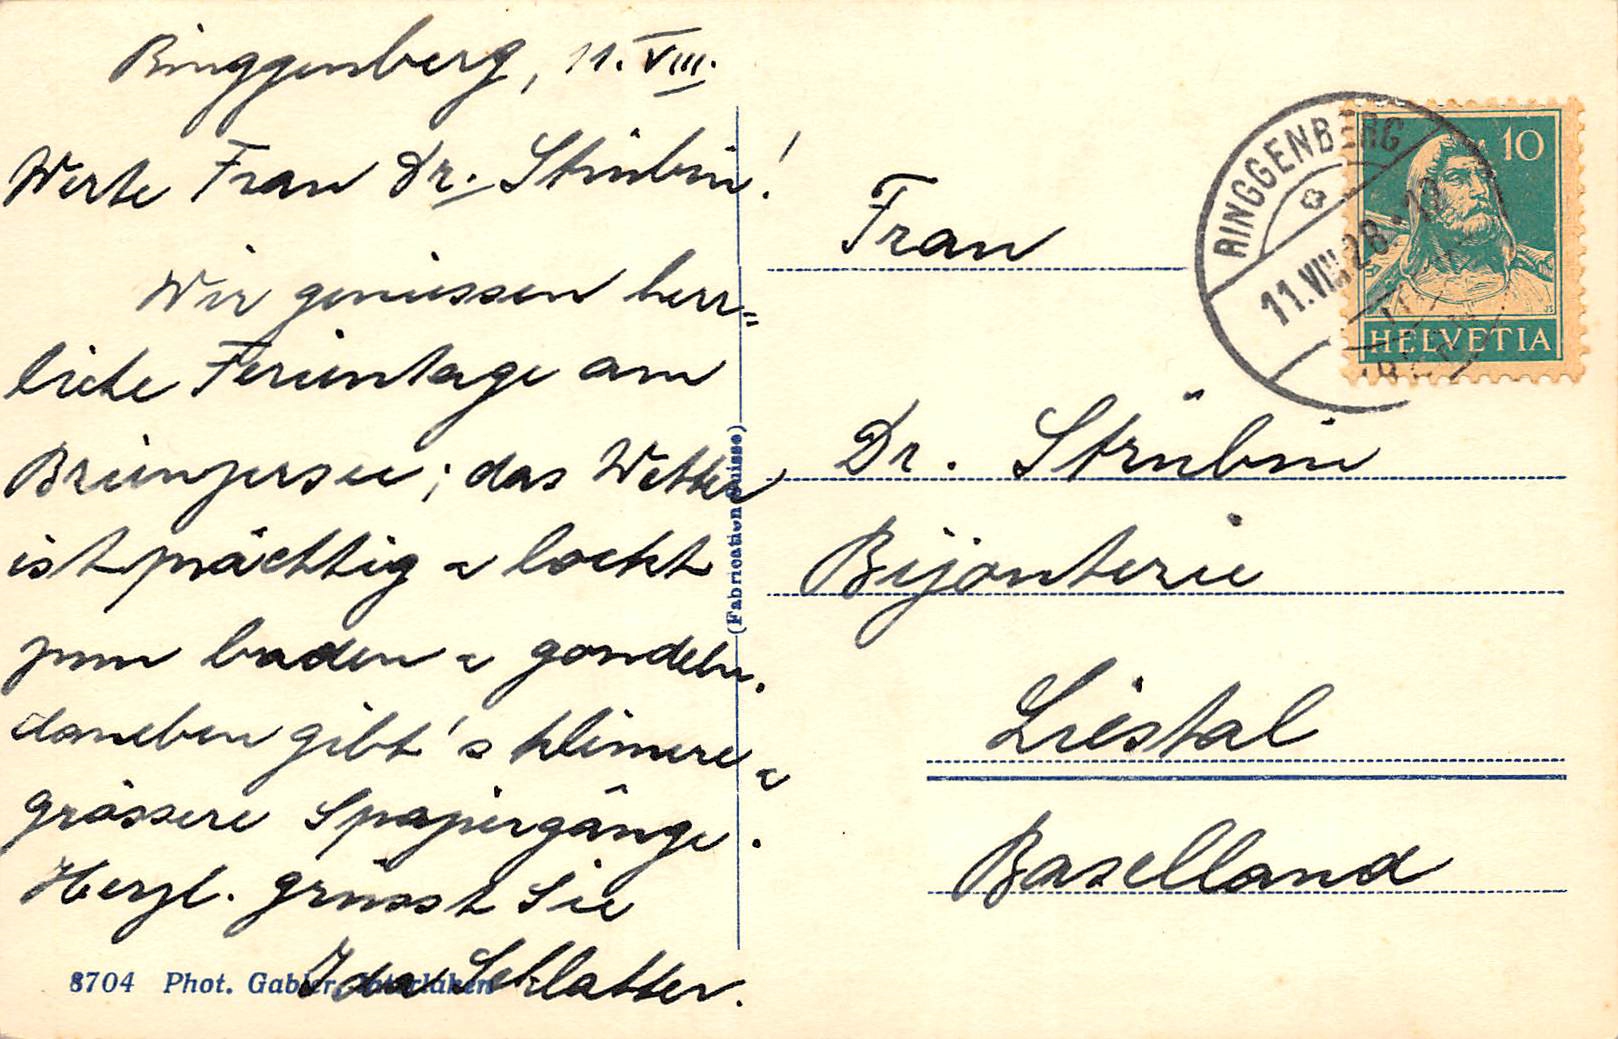 Ringgenberg, 11. VIII.
Werte Frau Dr. Strübin!
Wir geniessen herr=
liche Ferientage am
Brienzersee; das Wetter
ist prächtig u lockt
zum baden u gondeln.
daneben gibt's kleinere u
grössere Spaziergänge.
Herzl. grüsst Sie
Ida Schlatter.
8704 Phot. Gabler, Interlaken
(Fabrication Suisse)
RINGGENBERG
11.VIII.28.-10
10
HELVETIA
Frau
Dr. Strübin
Bijouterie
Liestal
Baselland